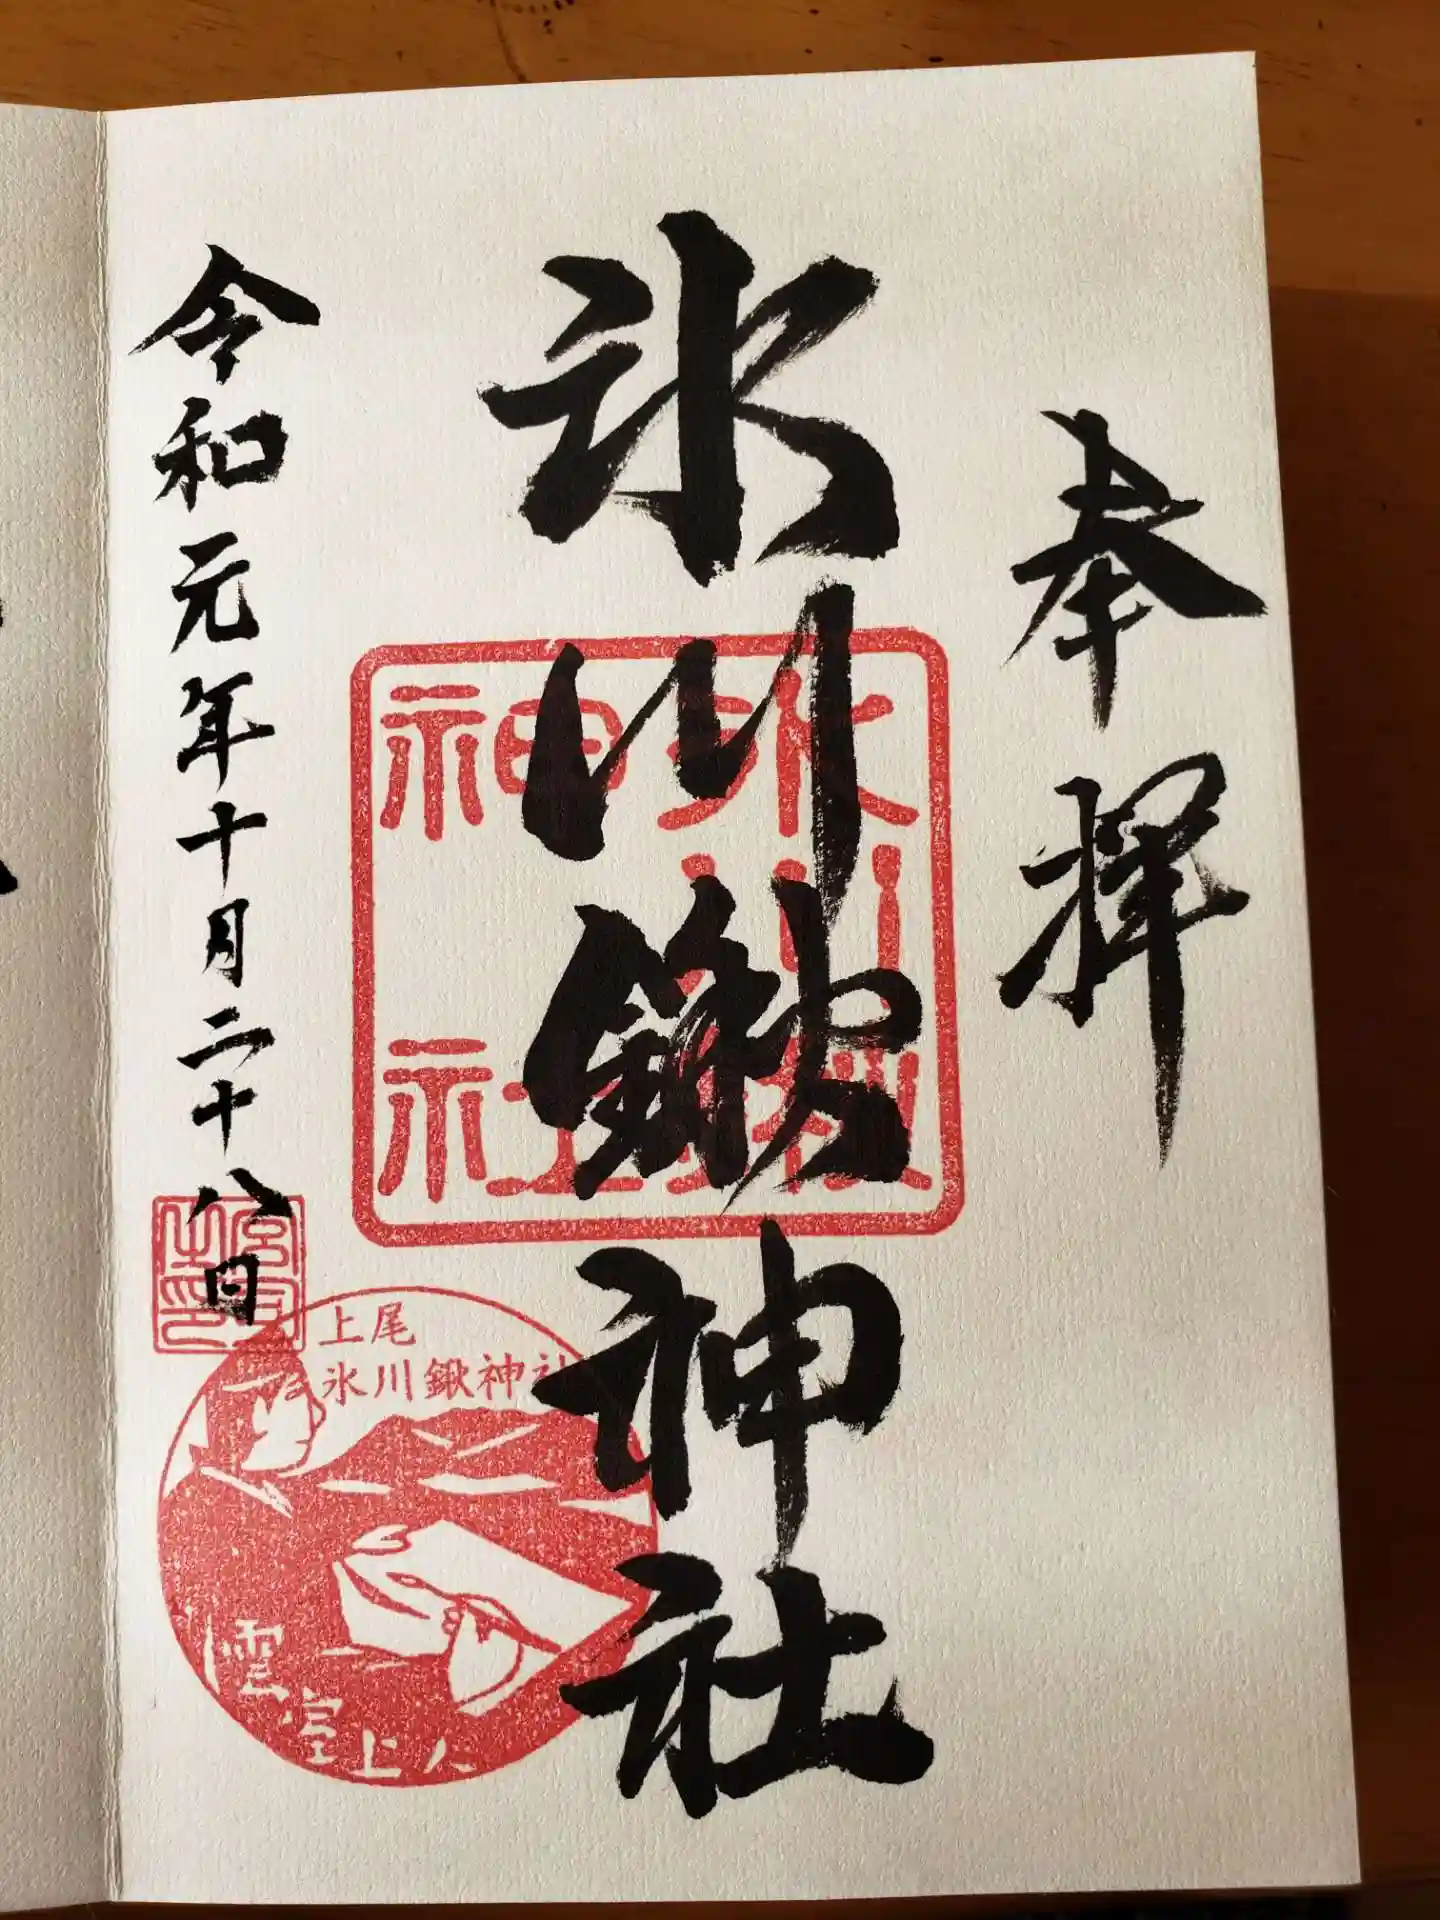 奉拝
氷川鍬神社
氷川鍬
神社
令和元年十月二十八日
宮司
之印
上尾
氷川鍬神社
雲室上人